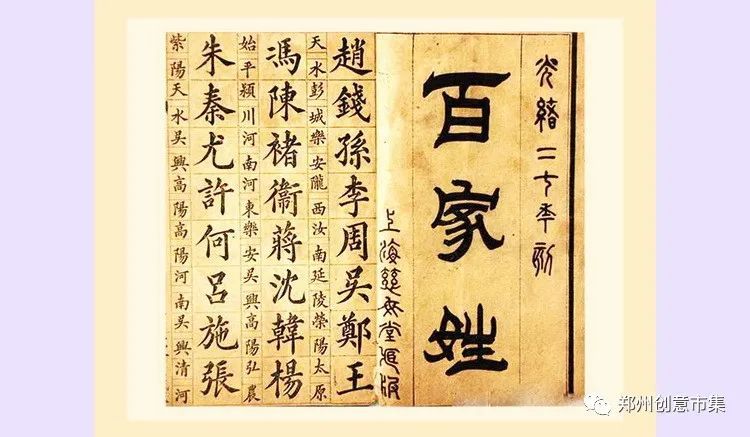 光緒二七年刻
百家姓
上海慈母堂
趙錢孫李周吳鄭王
天水彭城樂安隴西汝南延陵榮陽太原
馮陳褚衛蔣沈韓楊
始平潁川河南河東樂安吳興高陽弘農
朱秦尤許何呂施張
紫陽天水吳興高陽高陽河南吳興清河
郑州创意市集